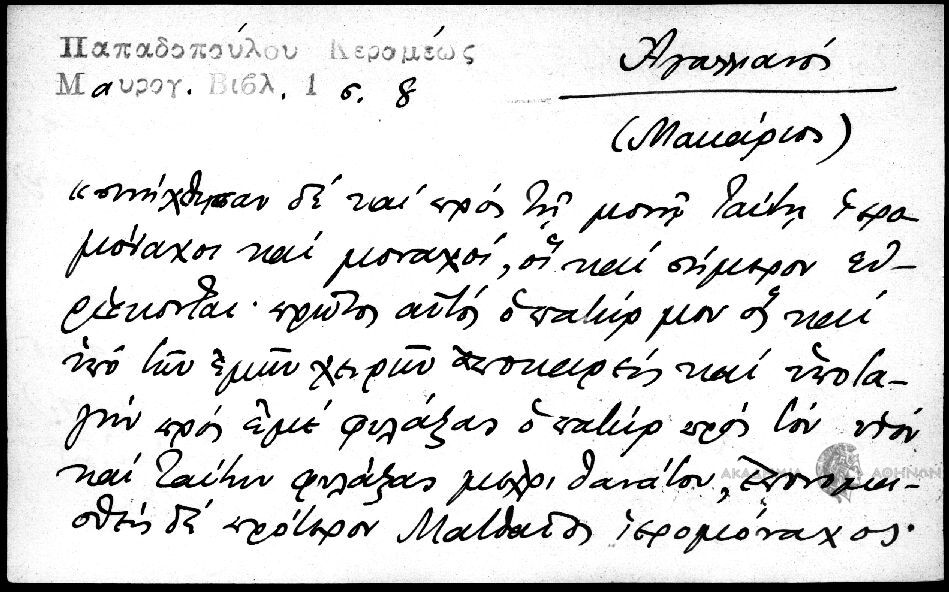 Παπαδοπούλου Κεραμέως
Μαυρογ. Βιβλ. 1 σ. 8
Ἀγαλλιανός
(Μακάριος)
«συνήχθησαν δέ καί πρός τῇ μονῇ ταύτῃ ἱερο-
μόναχοι καί μοναχοί, οἵ καί σήμερον εὑ-
ρίσκονται· πρῶτος αὐτός ὁ πατήρ μου ὅς καί
ὑπό τῶν ἐμῶν χειρῶν ἀποκαρείς καί ὑποτα-
γήν πρός ἐμέ φυλάξας ὁ πατήρ πρός τόν υἱόν
καί ταύτην φυλάξας μέχρι θανάτου, ἐπονομα-
σθείς δέ πρότερον Ματθαῖος ἱερομόναχος·
ΑΚΑΔΗΜΙΑ ΑΘΗΝΩΝ